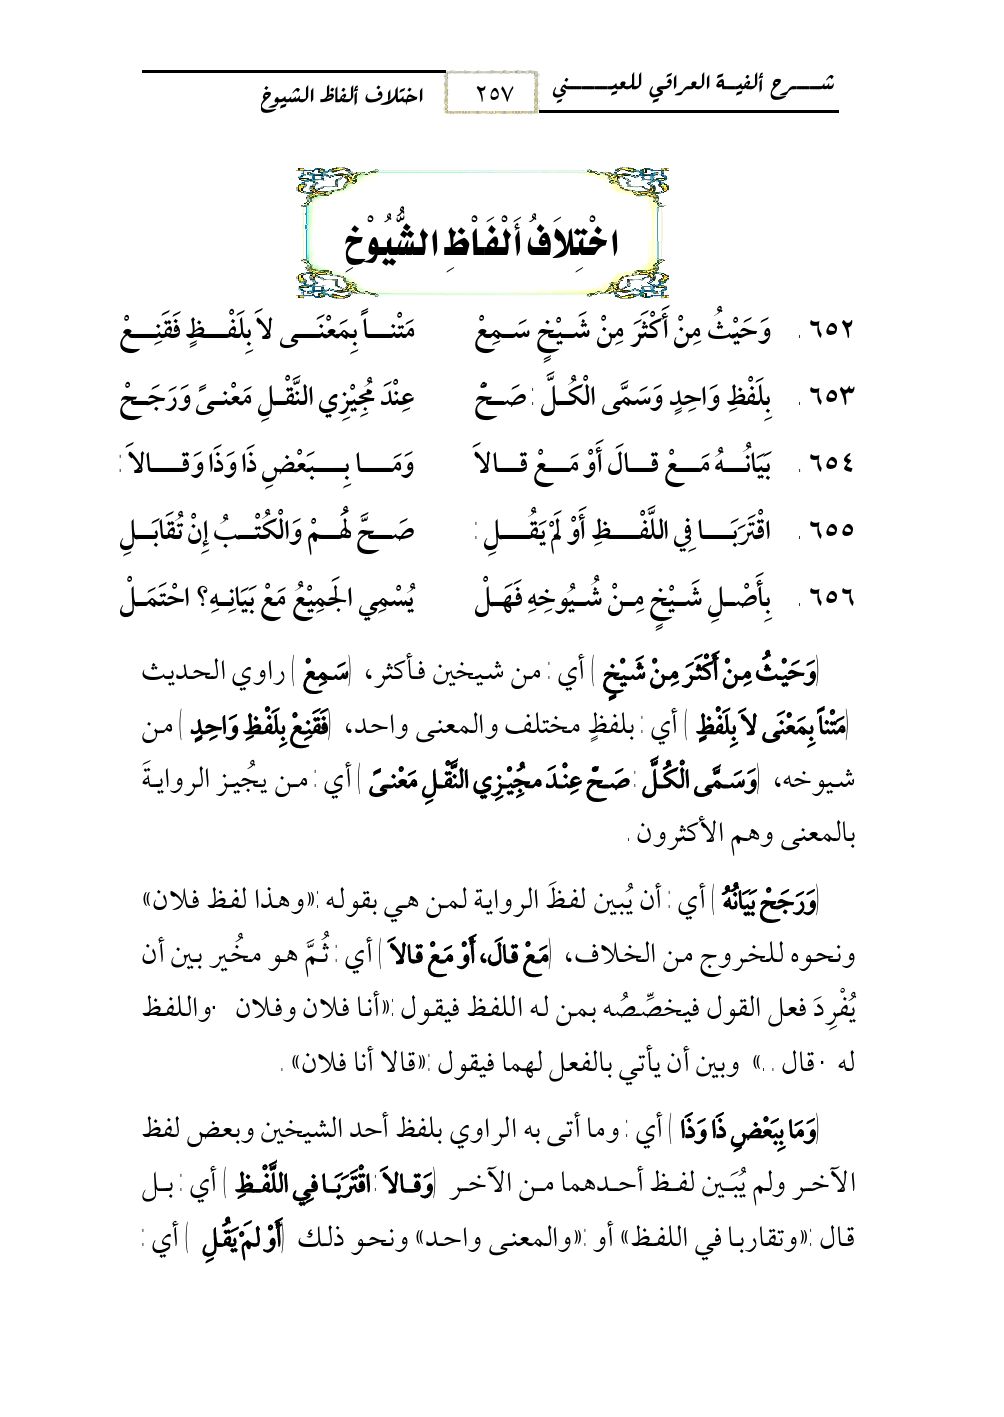 شـــرح ألفيـة العراقي للعيـــــني
٢٥٧
اختلاف ألفاظ الشيوخ
اخْتِلاَفُ أَلْفَاْظِ الشُّيُوْخِ
٦٥٢. وَحَيْثُ مِنْ أَكْثَرَ مِنْ شَـيْخٍ سَـمِعْ مَتْنــاً بِمَعْنَــى لاَ بِلَفْــظٍ فَقَنِــعْ
٦٥٣. بِلَفْظِ وَاحِدٍ وَسَمَّى الْكُـلَّ : صَـحّْ عِنْدَ مُجِيْزِي النَّقْـلِ مَعْنـىً وَرَجَـحْ
٦٥٤. بَيَانُــهُ مَــعْ قــالَ أَوْ مَــعْ قــالاَ وَمَــا بِـــبَعْضِ ذَا وَذَا وَقــالاَ :
٦٥٥. اقْتَرَبَــا فِي اللَّفْــظِ أَوْ لَمْ يَقُــلِ : صَــحَّ لَهُــمْ وَالْكُتْــبُ إِنْ تُقَابَــلِ
٦٥٦. بِأَصْـلِ شَـيْخٍ مِـنْ شُـيُوخِهِ فَهَـلْ يُسْمِي الجَمِيْعُ مَعْ بَيَانِـهِ؟ احْتَمَـلْ
(وَحَيْثُ مِنْ أَكْثَرَ مِنْ شَيْخٍ) أي : من شيخين فأكثر، (سَمِعْ) راوي الحديث
(مَتْناً بِمَعْنَى لاَ بِلَفْظٍ) أي : بلفظٍ مختلف والمعنى واحد، (فَقَنِعْ بِلَفْظِ وَاحِدٍ) من
شيوخه، (وَسَمَّى الْكُلَّ : صَحّْ عِنْدَ مجُِيْزِي النَّقْلِ مَعْنىً) أي : من يجُيز الروايةَ
بالمعنى وهم الأكثرون .
(وَرَجَحْ بَيَانُهُ) أي : أن يُبين لفظَ الرواية لمن هي بقوله :«وهذا لفظ فلان»
ونحوه للخروج من الخلاف، (مَعْ قالَ، أَوْ مَعْ قالاَ) أي : ثُمَّ هو مخُير بين أن
يُفْرِدَ فعل القول فيخصِّصُه بمن له اللفظ فيقول :«أنا فلان وفلان ٠واللفظ
له ٠ قال ..» وبين أن يأتي بالفعل لهما فيقول :«قالا أنا فلان» .
(وَمَا بِبَعْضِ ذَا وَذَا) أي : وما أتى به الراوي بلفظ أحد الشيخين وبعض لفظ
الآخر ولم يُبَين لفظ أحدهما من الآخر (وَقالاَ : اقْتَرَبَا فِي اللَّفْظِ) أي : بل
قال :«وتقاربا في اللفظ» أو :«والمعنى واحد» ونحو ذلك (أَوْ لمَ يَقُلِ) أي :